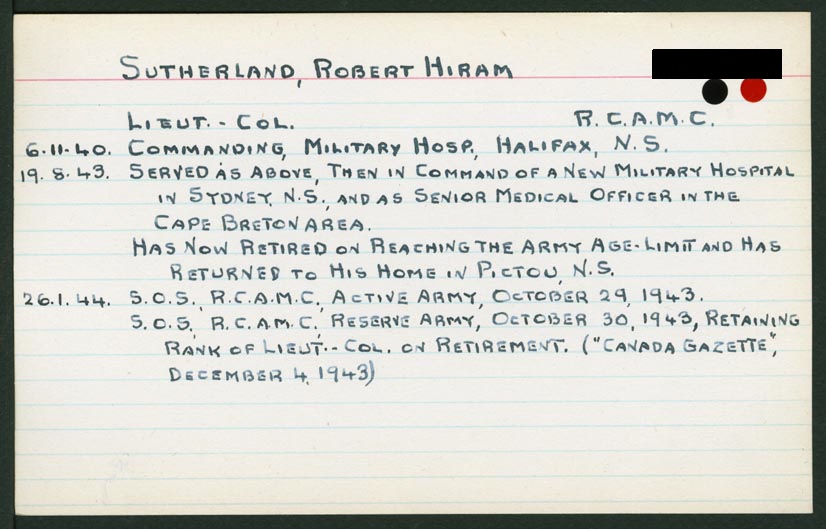 SUTHERLAND, ROBERT HIRAM
LIEUT.-COL. R.C.A.M.C.
6.11.40. COMMANDING, MILITARY HOSP., HALIFAX, N.S.
19.8.43. SERVED AS ABOVE, THEN IN COMMAND OF A NEW MILITARY HOSPITAL
IN SYDNEY, N.S., AND AS SENIOR MEDICAL OFFICER IN THE
CAPE BRETON AREA.
HAS NOW RETIRED ON REACHING THE ARMY AGE-LIMIT AND HAS
RETURNED TO HIS HOME IN PICTOU, N.S.
26.1.44. S.O.S., R.C.A.M.C., ACTIVE ARMY, OCTOBER 29, 1943.
S.O.S., R.C.A.M.C., RESERVE ARMY, OCTOBER 30, 1943, RETAINING
RANK OF LIEUT.-COL. ON RETIREMENT. ("CANADA GAZETTE",
DECEMBER 4, 1943)